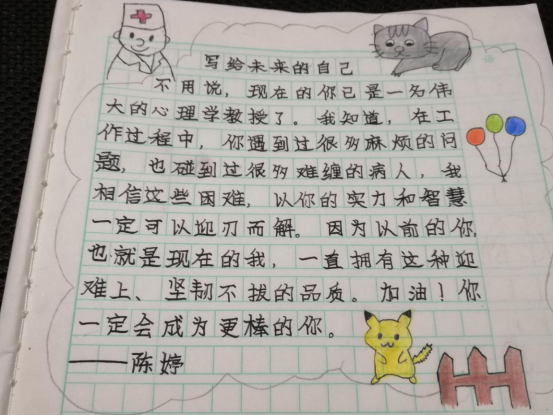 写给未来的自己
不用说，现在的你已是一名伟
大的心理学教授了。我知道，在工
作过程中，你遇到过很多麻烦的问
题，也碰到过很多难缠的病人，我
相信这些困难，以你的实力和智慧
一定可以迎刃而解。因为以前的你，
也就是现在的我，一直拥有这种迎
难上、坚韧不拔的品质。加油！你
一定会成为更棒的你。
——陈婷